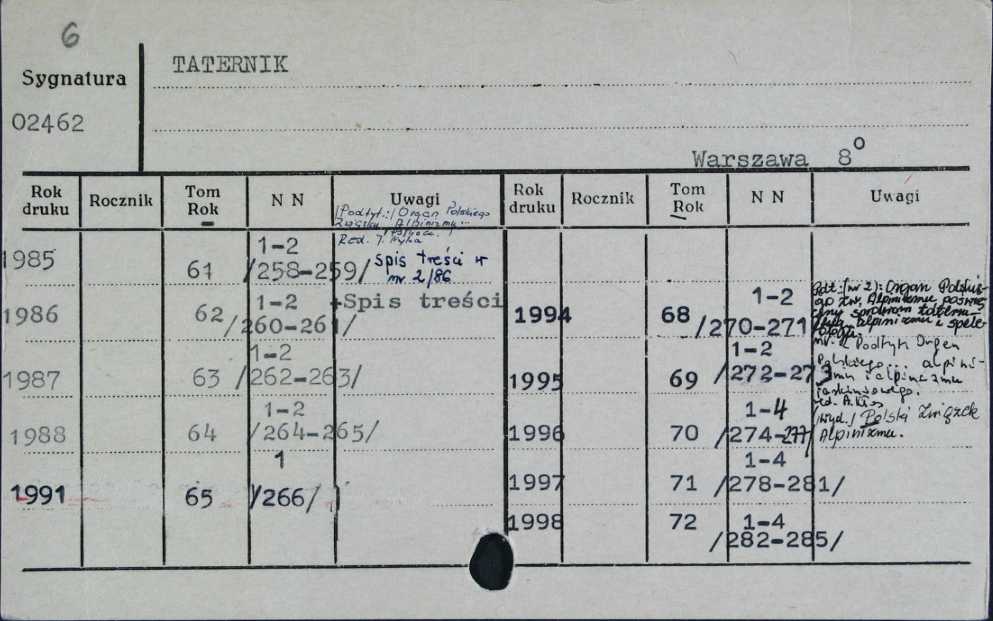 6
Sygnatura
TATERNIK
02462
Warszawa 8°
Rok druku Rocznik Tom Rok N N Uwagi Rok druku Rocznik Tom Rok N N Uwagi
/Podtyt.:/ Organ Polskiego
Związku Alpinizmu
Red. J.
1985 61 1-2 /258-259/ Spis treści w
nr 2/86
1986 62 1-2 /260-261/ +Spis treści
1987 63 1-2 /262-263/
1988 64 1-2 /264-265/
1991 65 1 /266/
1994 68 1-2 /270-271/ (nr 2): Organ Polskie-
go Zw. Alpinizmu poświę-
cony sprawom taterni-
ctwa, alpinizmu i spele-
ologii.
1995 69 1-2 /272-273/ nr. 2 Podtyt. Organ
Polskiego... alpini-
zmu i alpinizmu
jaskiniowego.
red. A.
1996 70 1-4 /274-277/ /Wyd./ Polski Związek
Alpinizmu.
1997 71 1-4 /278-281/
1998 72 1-4 /282-285/